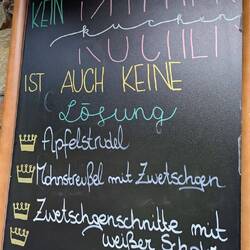 KEIN
kuchen
IST AUCH KEINE
Lösung
Apfelstrudel
Mohnstreußel mit Zwetschgen
Zwetschgenschnitte mit
weißer